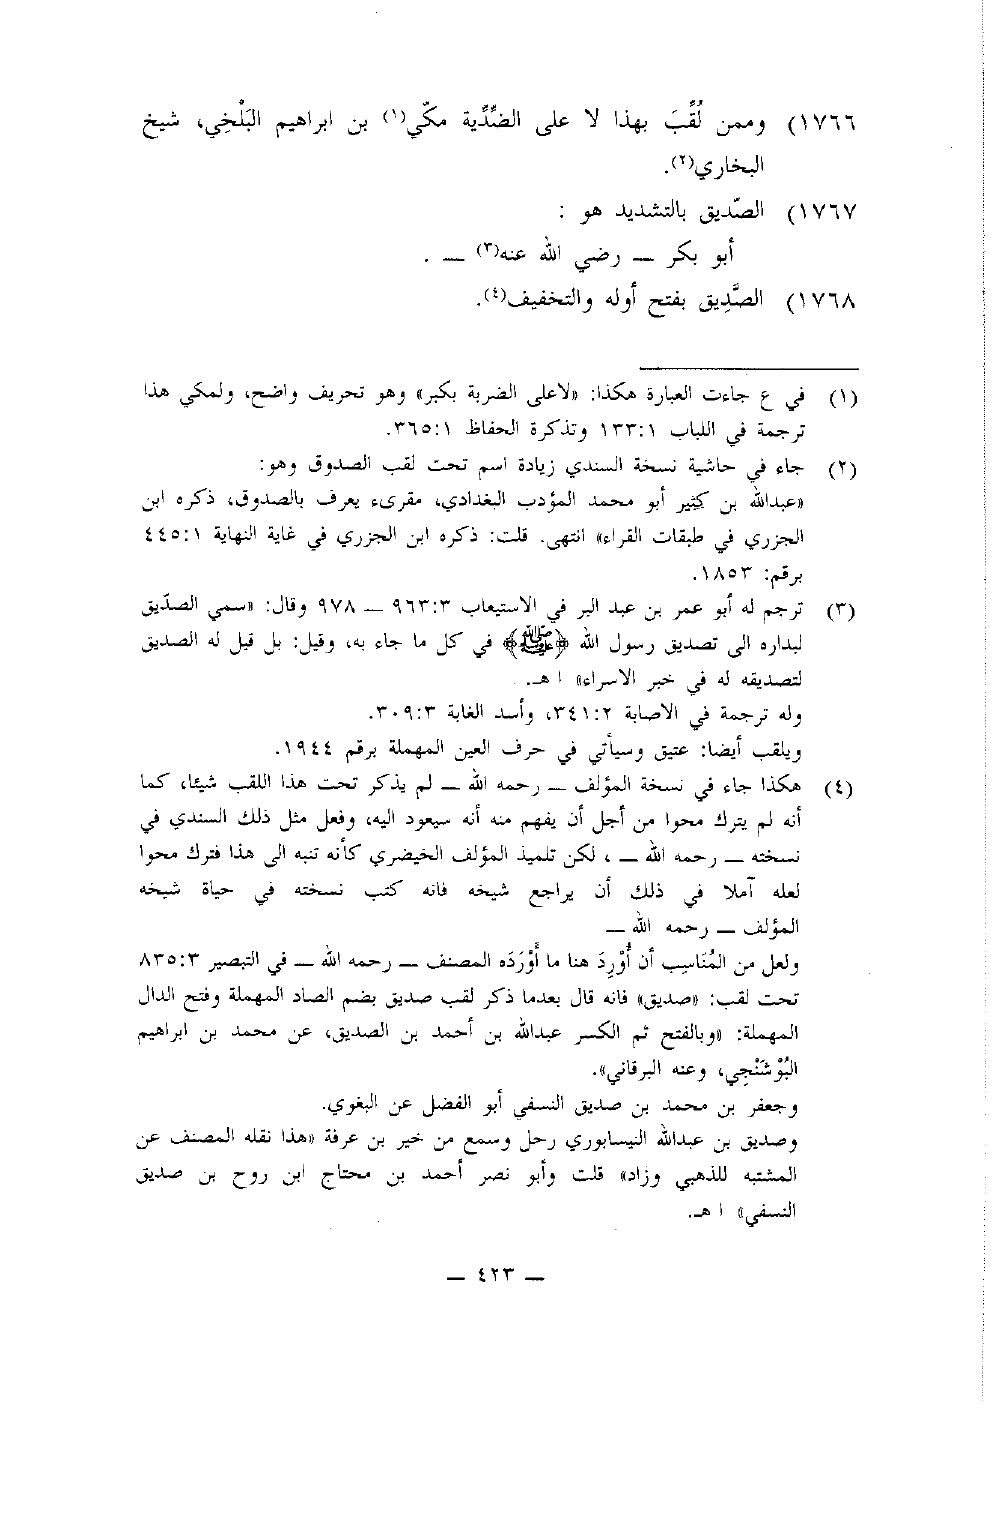 ١٧٦٦) وممن لُقِّبَ بهذا لا على الضِّدِّية مكّي(١) بن ابراهيم البَلْخِي، شيخ
البخاري(٢).
١٧٦٧) الصّديق بالتشديد هو :
أبو بكر — رضي الله عنه(٣) — .
١٧٦٨) الصَّدِيق بفتح أوله والتخفيف(٤).
(١) في ع جاءت العبارة هكذا: «لاعلى الضربة بكبر» وهو تحريف واضح، ولمكي هذا
ترجمة في اللباب ١٣٣:١ وتذكرة الحفاظ ٣٦٥:١.
(٢) جاء في حاشية نسخة السندي زيادة اسم تحت لقب الصدوق وهو:
«عبدالله بن كثير أبو محمد المؤدب البغدادي، مقرىء يعرف بالصدوق، ذكره ابن
الجزري في طبقات القراء» انتهى. قلت: ذكره ابن الجزري في غاية النهاية ٤٤٥:١
برقم: ١٨٥٣.
(٣) ترجم له أبو عمر بن عبد البر في الاستيعاب ٩٦٣:٣ — ٩٧٨ وقال: «سمي الصدّيق
لبداره الى تصديق رسول الله ﴿ﷺ﴾ في كل ما جاء به، وقيل: بل قيل له الصديق
لتصديقه له في خبر الاسراء» ا هـ.
وله ترجمة في الاصابة ٣٤١:٢، وأسد الغابة ٣٠٩:٣.
ويلقب أيضا: عتيق وسيأتي في حرف العين المهملة برقم ١٩٤٤.
(٤) هكذا جاء في نسخة المؤلف — رحمه الله — لم يذكر تحت هذا اللقب شيئا، كما
أنه لم يترك محوا من أجل أن يفهم منه أنه سيعود اليه، وفعل مثل ذلك السندي في
نسخته — رحمه الله — ، لكن تلميذ المؤلف الخيضري كأنه تنبه الى هذا فترك محوا
لعله آملا في ذلك أن يراجع شيخه فانه كتب نسخته في حياة شيخه
المؤلف — رحمه الله —
ولعل من المُنَاسِب أن أُوْرِدَ هنا ما أَوْرَدَه المصنف — رحمه الله — في التبصير ٨٣٥:٣
تحت لقب: «صديق» فانه قال بعدما ذكر لقب صديق بضم الصاد المهملة وفتح الدال
المهملة: «وبالفتح ثم الكسر عبدالله بن أحمد بن الصديق، عن محمد بن ابراهيم
البُوْشَنْجِي، وعنه البرقاني».
وجعفر بن محمد بن صديق النسفي أبو الفضل عن البغوي.
وصديق بن عبدالله النيسابوري رحل وسمع من خير بن عرفة «هذا نقله المصنف عن
المشتبه للذهبي وزاد» قلت وأبو نصر أحمد بن محتاج ابن روح بن صديق
النسفي» ا هـ.
— ٤٢٣ —